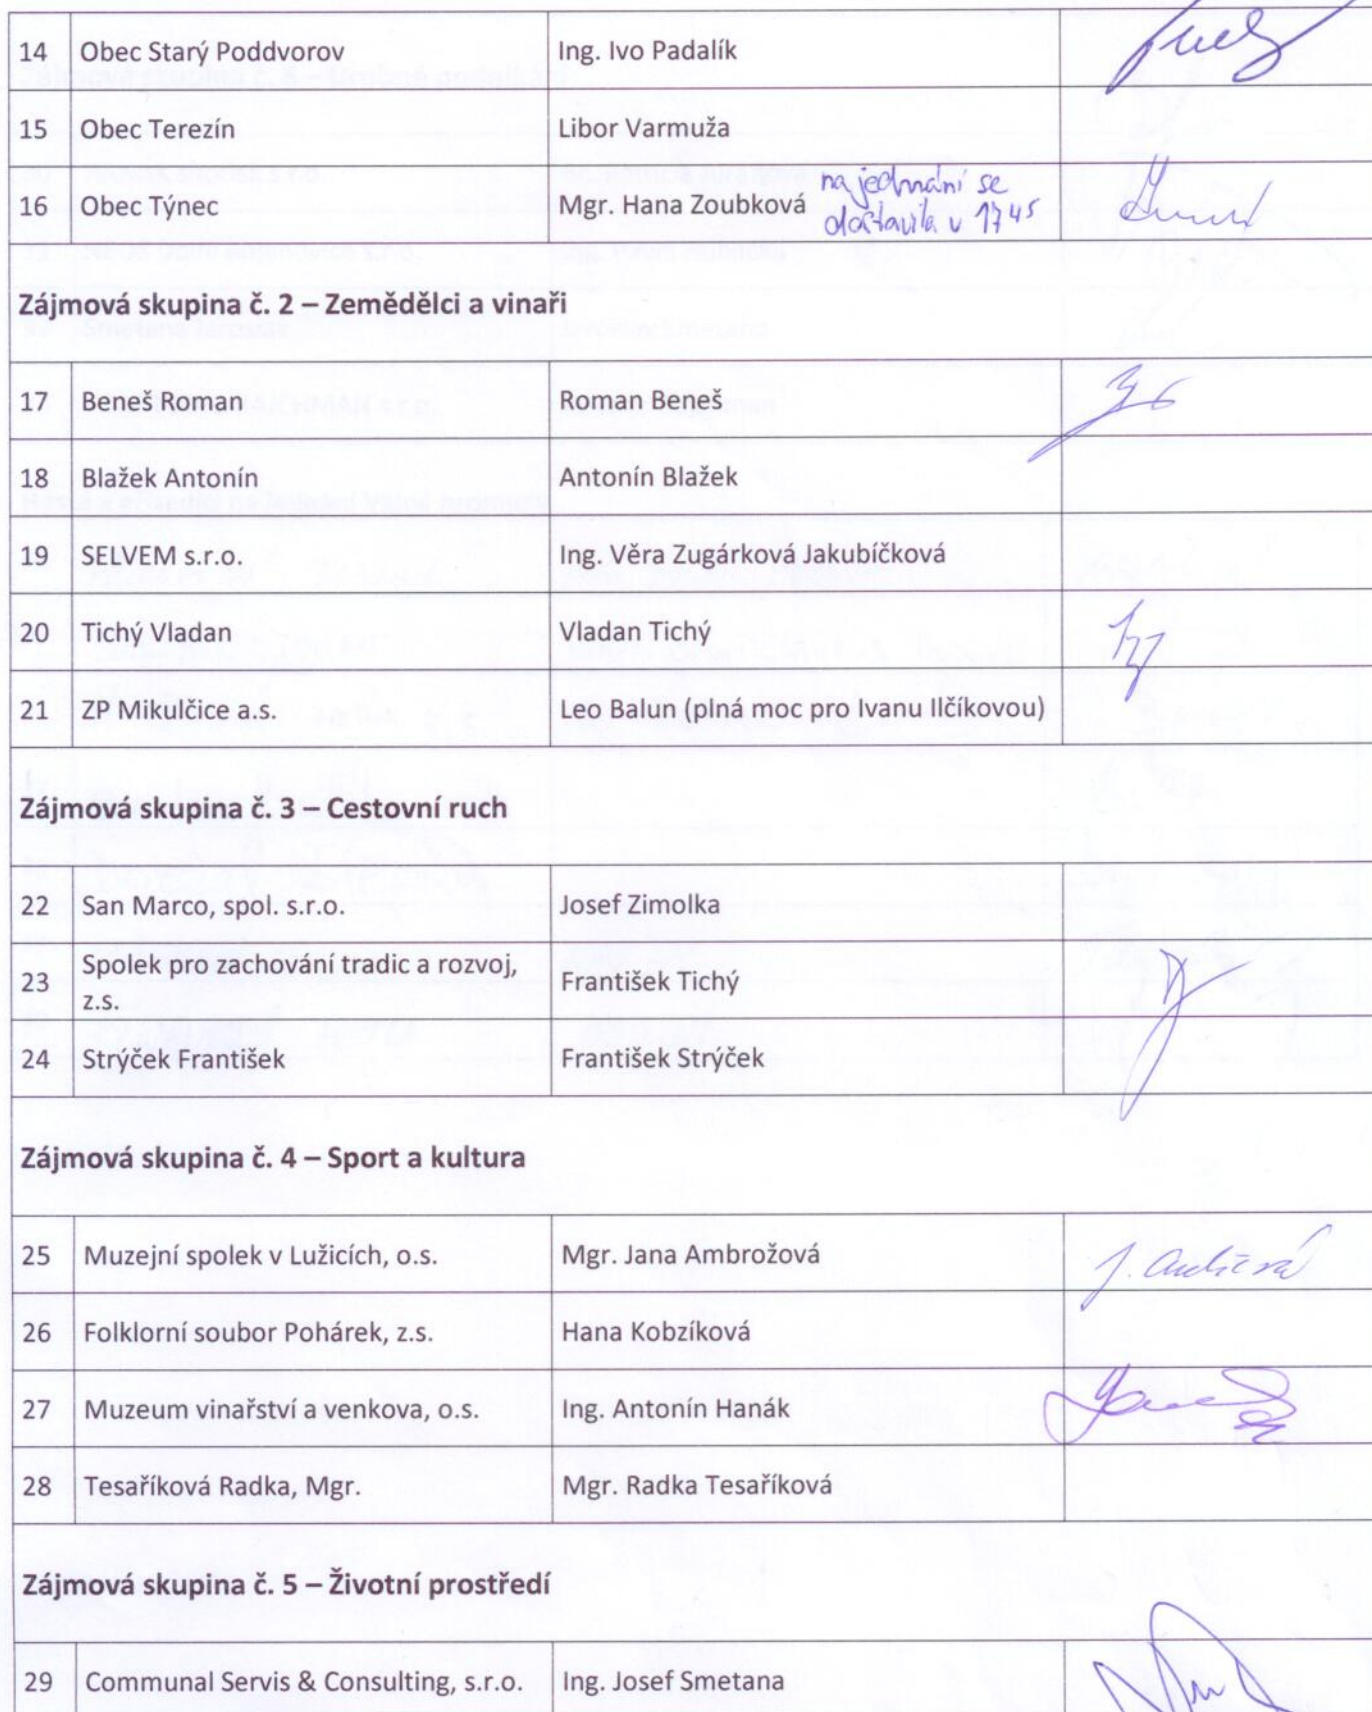 14 Obec Starý Poddvorov Ing. Ivo Padalík
15 Obec Terezín Libor Varmuža
16 Obec Týnec Mgr. Hana Zoubková na jednání se
dostavila v 17 45
Zájmová skupina č. 2 – Zemědělci a vinaři
17 Beneš Roman Roman Beneš
18 Blažek Antonín Antonín Blažek
19 SELVEM s.r.o. Ing. Věra Zugárková Jakubíčková
20 Tichý Vladan Vladan Tichý
21 ZP Mikulčice a.s. Leo Balun (plná moc pro Ivanu Ilčíkovou)
Zájmová skupina č. 3 – Cestovní ruch
22 San Marco, spol. s.r.o. Josef Zimolka
23 Spolek pro zachování tradic a rozvoj,
z.s. František Tichý
24 Strýček František František Strýček
Zájmová skupina č. 4 – Sport a kultura
25 Muzejní spolek v Lužicích, o.s. Mgr. Jana Ambrožová
26 Folklorní soubor Pohárek, z.s. Hana Kobzíková
27 Muzeum vinařství a venkova, o.s. Ing. Antonín Hanák
28 Tesaříková Radka, Mgr. Mgr. Radka Tesaříková
Zájmová skupina č. 5 – Životní prostředí
29 Communal Servis & Consulting, s.r.o. Ing. Josef Smetana